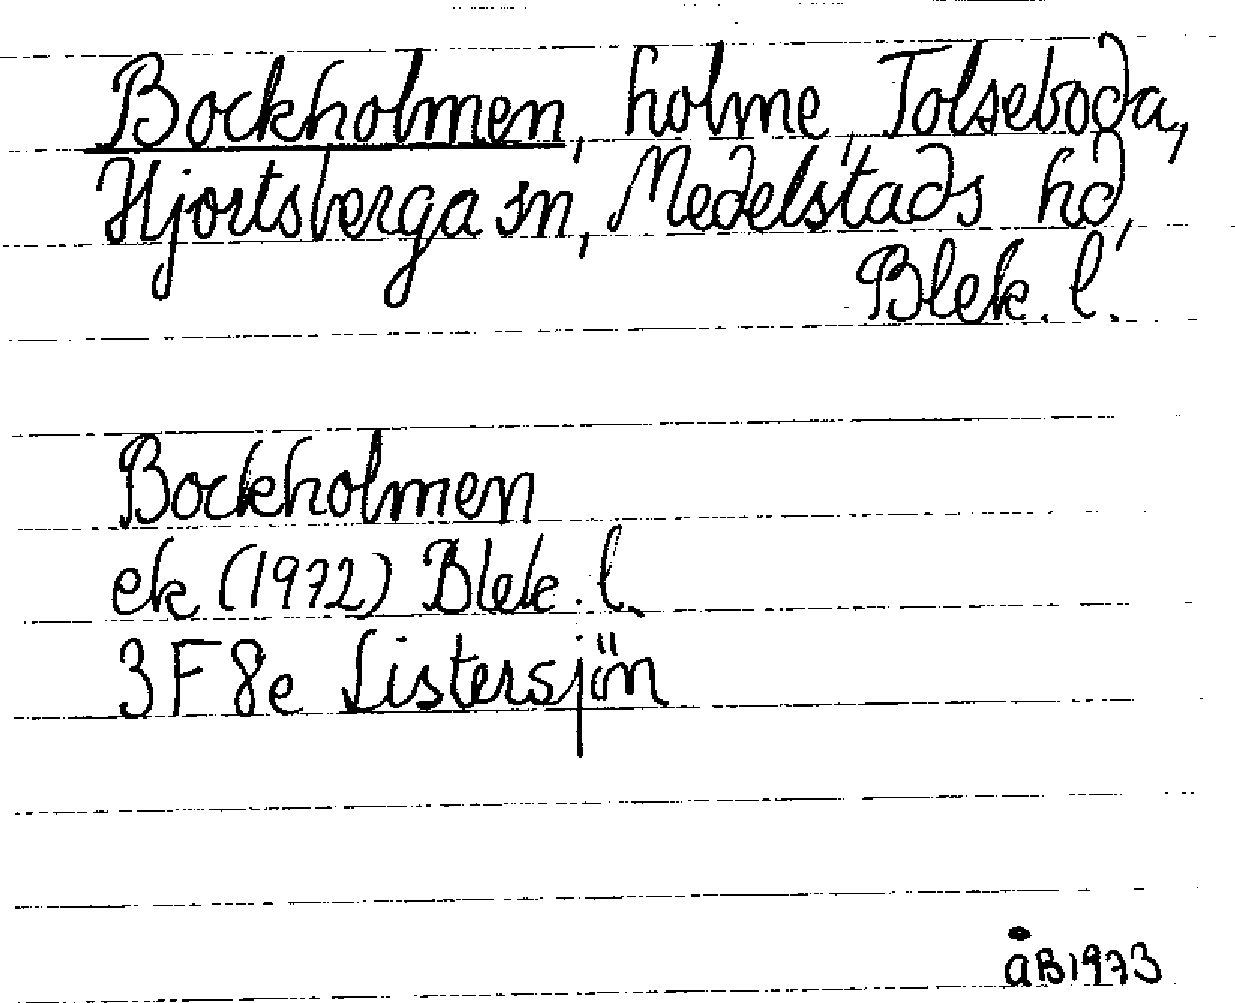 Bockholmen, holme, Tolseboda,
Hjortsberga sn, Medelstads hd,
Blek. l.
Bockholmen
ek (1972) Blek. l.
3F 8e Listersjön
åB1973